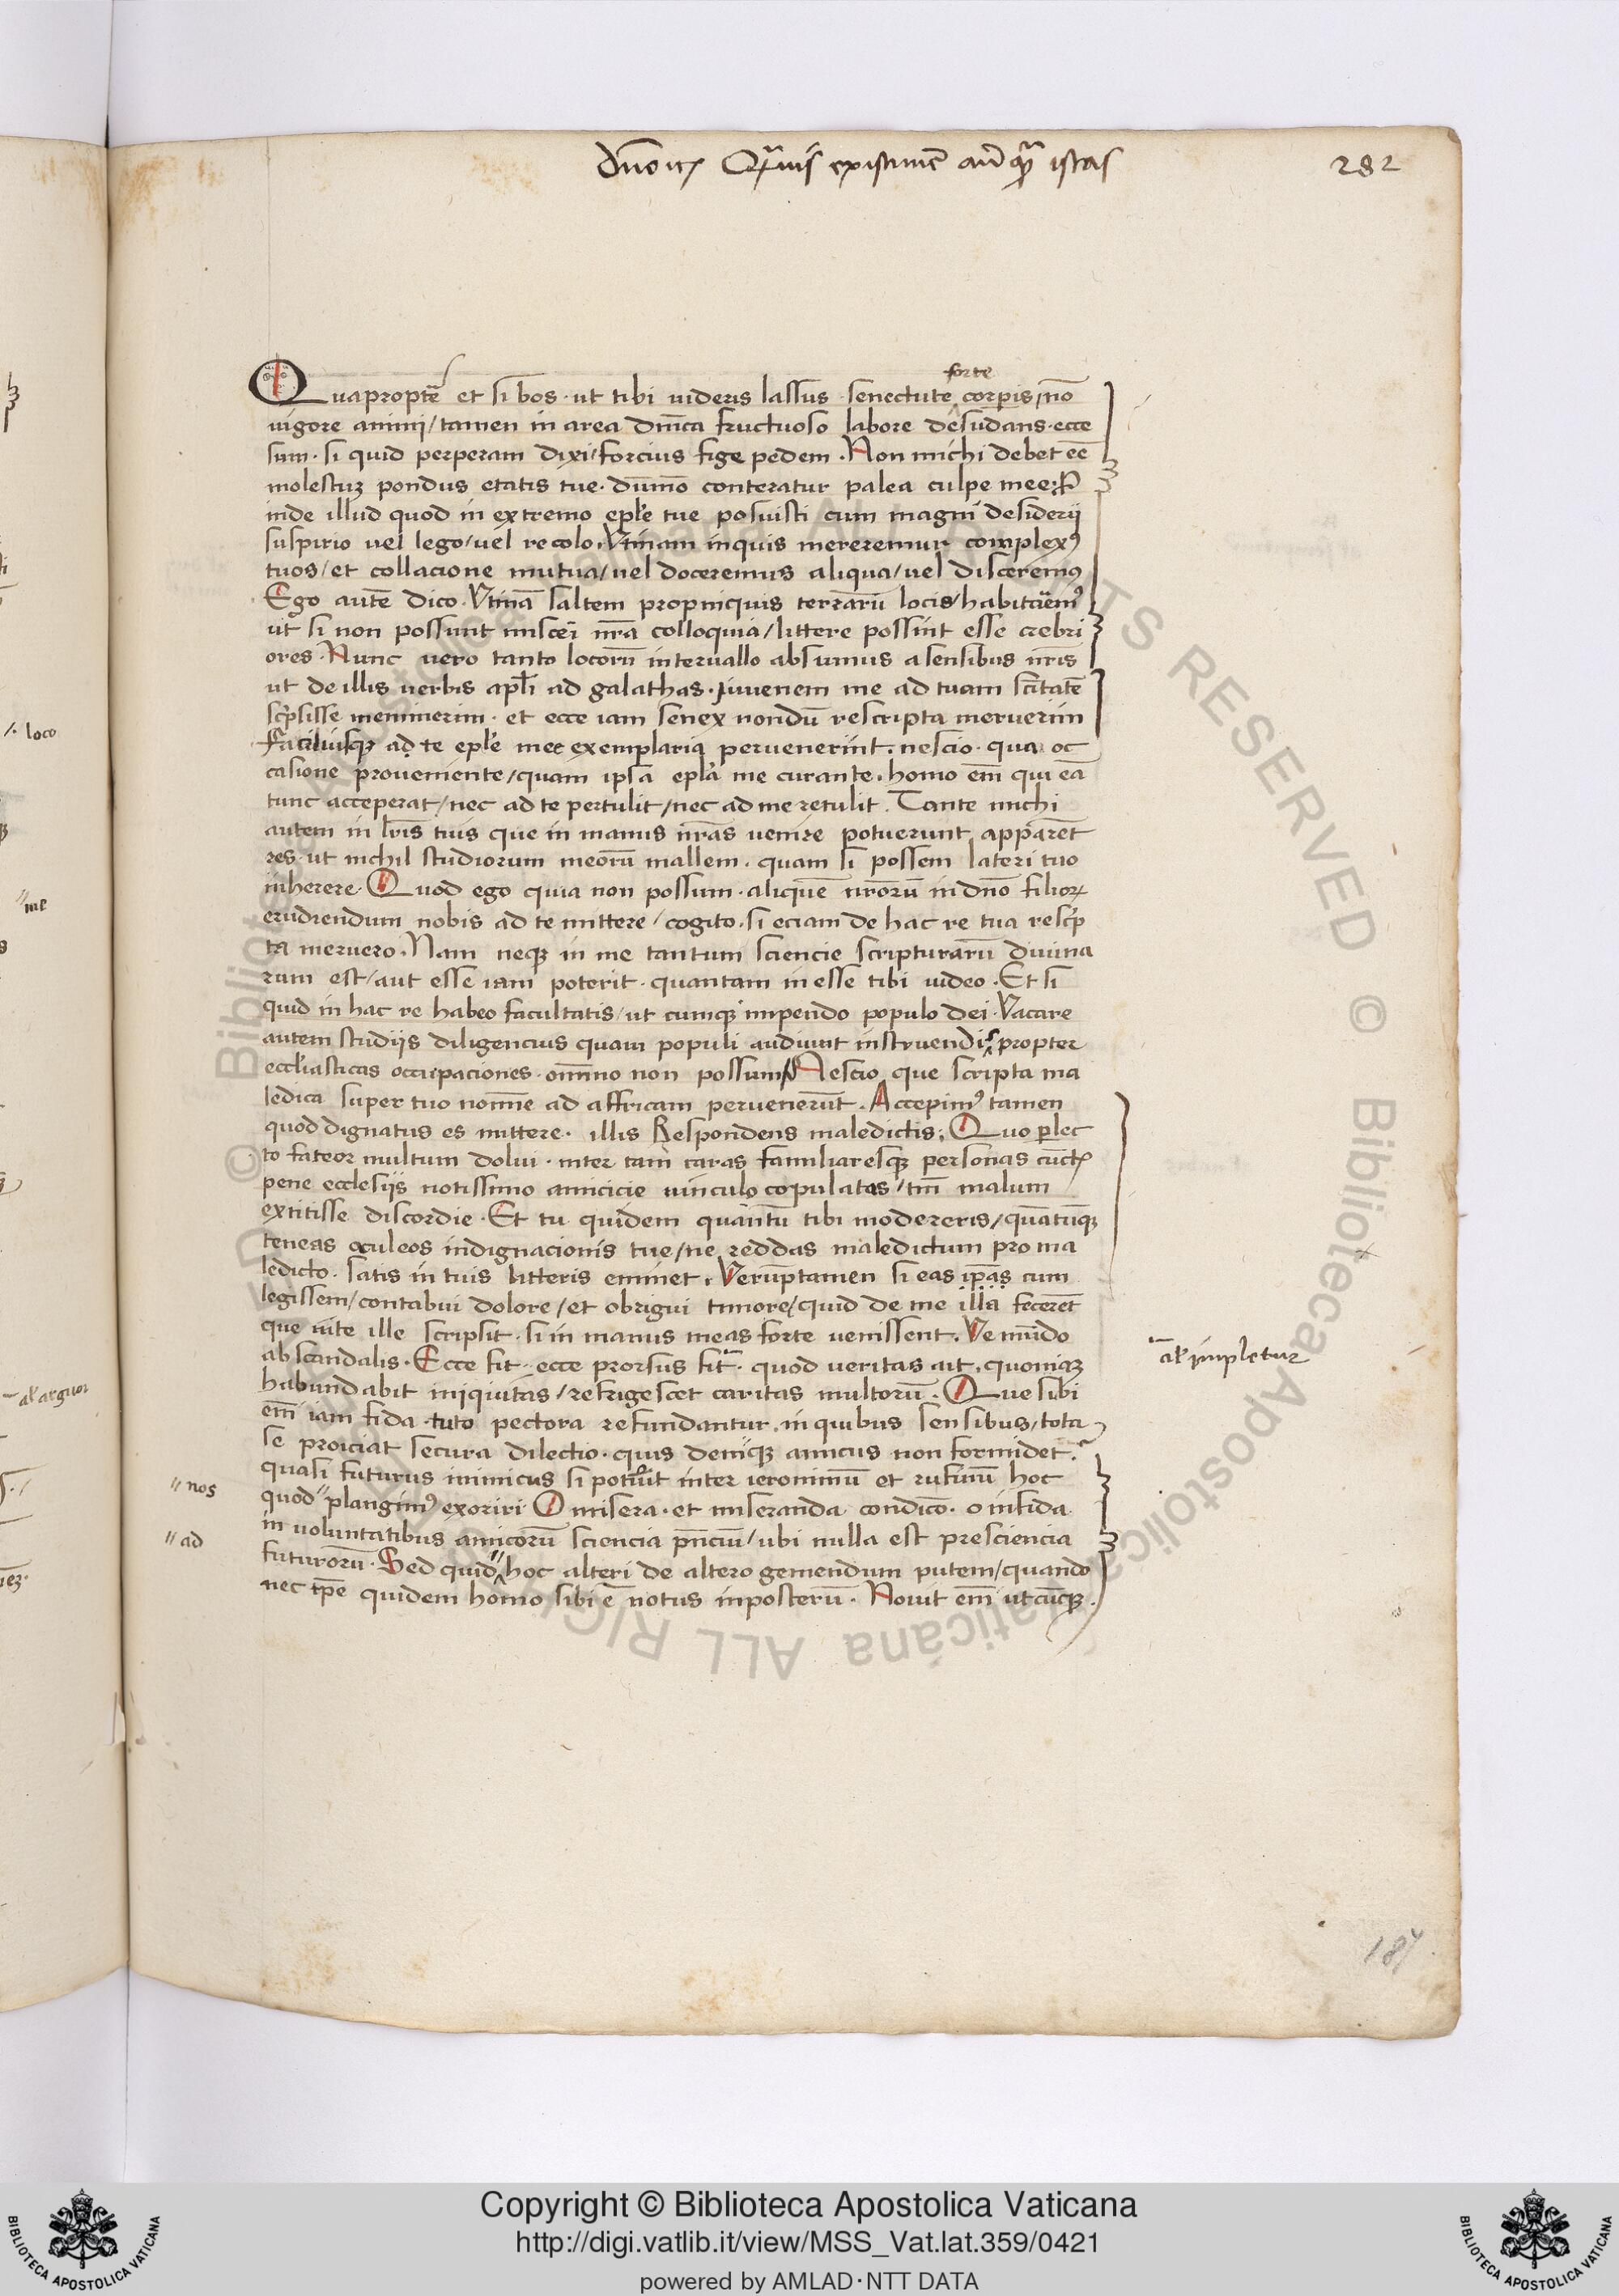 282
forte
Quaproptē et si bos · ut tibi uideris lassus · senectute corporis / nō
uigore animi / tamen in area dm̄ca fructuoso labore desudans · ecce
sum · si quid perperam dixi / forcius fige pedem . Non michi debet eē
molestuʒ pondus etatis tue · dūmō conteratur palea culpe mee
inde illud quod in extremo epl̄e tue posuisti cum magni desiderij
suspirio uel lego / uel recolo . Vtinam inquis mereremur complexꝰ
tuos / et collacione mutua / uel doceremus aliqua / uel disceremꝰ
Ego autē dico . Vtinā saltem propinquis terrarū locis / habitaremꝰ
ut si non possunt misceri nr̄a colloquia / littere possint esse crebri
ores · Nunc uero tanto locorū interuallo absumus a sensibus nr̄is
ut de illis uerbis apl̄i ad galathas · iuuenem me ad tuam sc̄itatē
scp̄sisse meminerim · et ecce iam senex nondū rescripta meruerim
faciliusqʒ ad te epl̄e mee exemplaria peruenerint . nescio · qua oc
casione proueniente / quam ipsa epl̄a me curante . homo em̄ qui eā
tunc acceperat / nec ad te pertulit / nec ad me retulit . Tante michi
autem in lr̄is tuis que in manus nr̄as uenire potuerunt apparēt
res · ut nichil studiorum meorū mallem . quam si possem lateri tuo
inherere · Quod ego quia non possum · aliquē nr̄orū in dn̄o filioꝝ
erudiendum nobis ad te mittere / cogito . si eciam de hac re tua rescp̄
ta meruero . Nam neqʒ in me tantum sciencie scripturarū diuina
rum est / aut esse iam poterit · quantam in esse tibi uideo . Et si
quid in hac re habeo facultatis / ut cumqʒ impendo populo dei · Vacare
autem studijs diligencius quam populi audiunt instruendis propter
eccl̄iasticas occupaciones · omīno non possum Nescio que scripta ma
ledica super tuo nomine ad affricam peruenerūt . Accepimꝰ tamen
quod dignatus es mittere · illis Respondens maledictis . Quo perlec
to fateor multum dolui · inter tam caras familiaresqʒ personas cunctꝭ
pene ecclesijs notissimo amicicie uinculo copulatas / tm̄ malum
extitisse discordie · Et tu quidem quantū tibi modereris / quātūqʒ
teneas aculeos indignacionis tue / ne reddas maledictum pro ma
ledicto · satis in tuis litteris eminet . Verūptamen si eas ip̄as cum
legissem / contabui dolore / et obrigui timore / quid de me illa fecerēt
que in te ille scripsit · si in manus meas forte uenissent . Ve mūdo
ab scandalis · Ecce fit · ecce prorsus fit · quod ueritas ait . quoniaʒ
habundabit iniquitas / refrigescet caritas multorū . Que sibi
em̄ iam fida tuto pectora refundantur . in quibus sensibus / tota
se proiciat secura dilectio · quis deniqʒ amicus non formidet .
quasi futurus inimicus si potuit inter ieronimū et rufinū hoc
quod plangimꝰ exoriri O misera · et miseranda condicō · o infida
in uoluntatibus amicorū sciencia pn̄ciū / ubi nulla est presciencia
futurorū · Sed quid hoc alteri de altero gemendum putem / quando
nec ip̄e quidem homo sibi ē notus inposterū · Nouit em̄ utcūqʒ .
al̄ impletur
nos
ad
loco
me
al̄ arguor
187
Copyright © Biblioteca Apostolica Vaticana
http://digi.vatlib.it/view/MSS_Vat.lat.359/0421
powered by AMLAD·NTT DATA
BIBLIOTECA APOSTOLICA VATICANA
BIBLIOTECA APOSTOLICA VATICANA